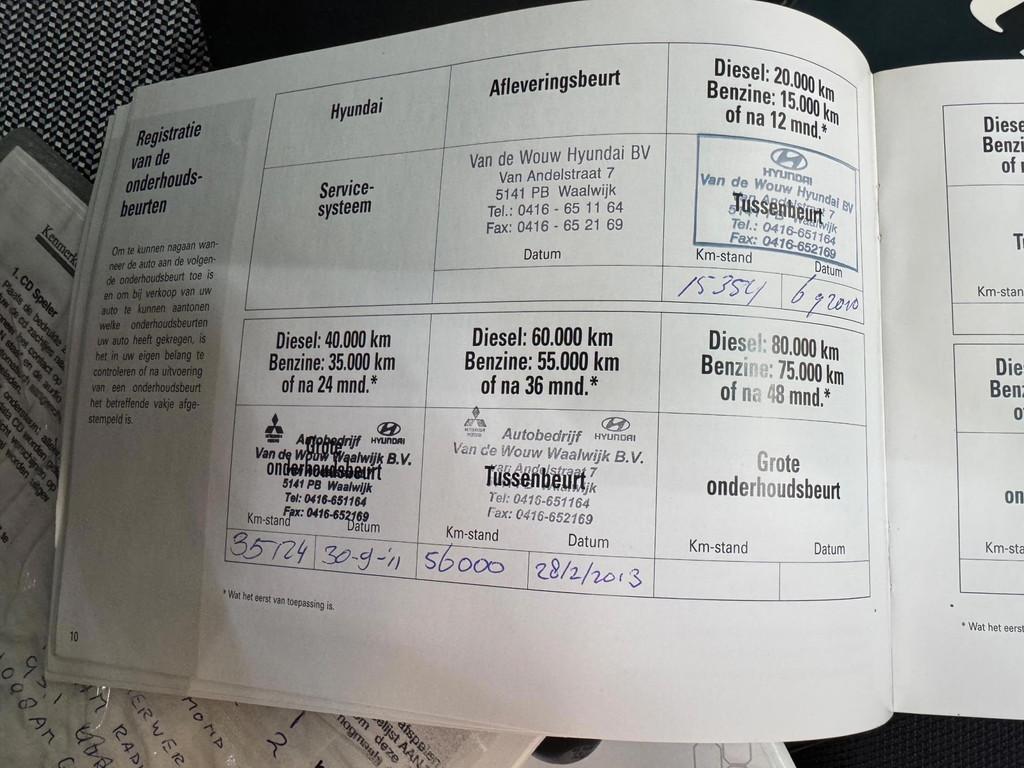 Registratie
van de
onderhouds-
beurten
Om te kunnen nagaan wan-
neer de auto aan de volgen-
de onderhoudsbeurt toe is
en om bij verkoop van uw
auto te kunnen aantonen
welke onderhoudsbeurten
uw auto heeft gekregen, is
het in uw eigen belang te
controleren of na uitvoering
van een onderhoudsbeurt
het betreffende vakje afge-
stempeld is.
10
Hyundai
Service-
systeem
Afleveringsbeurt
Van de Wouw Hyundai BV
Van Andelstraat 7
5141 PB Waalwijk
Tel.: 0416 - 65 11 64
Fax: 0416 - 65 21 69
Datum
Diesel: 20.000 km
Benzine: 15.000 km
of na 12 mnd.*
HYUNDAI
Van de Wouw Hyundai BV
van Andelstraat 7
Tussenbeurt
Tel.: 0416-651164
Fax: 0416-652169
Km-stand
Datum
15354
6 9 2010
Diesel: 40.000 km
Benzine: 35.000 km
of na 24 mnd.*
Autobedrijf HYUNDAI
Grote
Van de Wouw Waalwijk B.V.
onderhoudsbeurt
5141 PB Waalwijk
Tel: 0416-651164
Fax: 0416-652169
Km-stand
Datum
35124
30-9-'11
Diesel: 60.000 km
Benzine: 55.000 km
of na 36 mnd.*
Autobedrijf HYUNDAI
Van de Wouw Waalwijk B.V.
van Andelstraat 7
Tussenbeurt
Tel: 0416-651164
Fax: 0416-652169
Km-stand
Datum
56000
28/2/2013
Diesel: 80.000 km
Benzine: 75.000 km
of na 48 mnd.*
Grote
onderhoudsbeurt
Km-stand
Datum
* Wat het eerst van toepassing is.
Km-stan
* Wat het eerst
Kenmerk
1. CD Speler